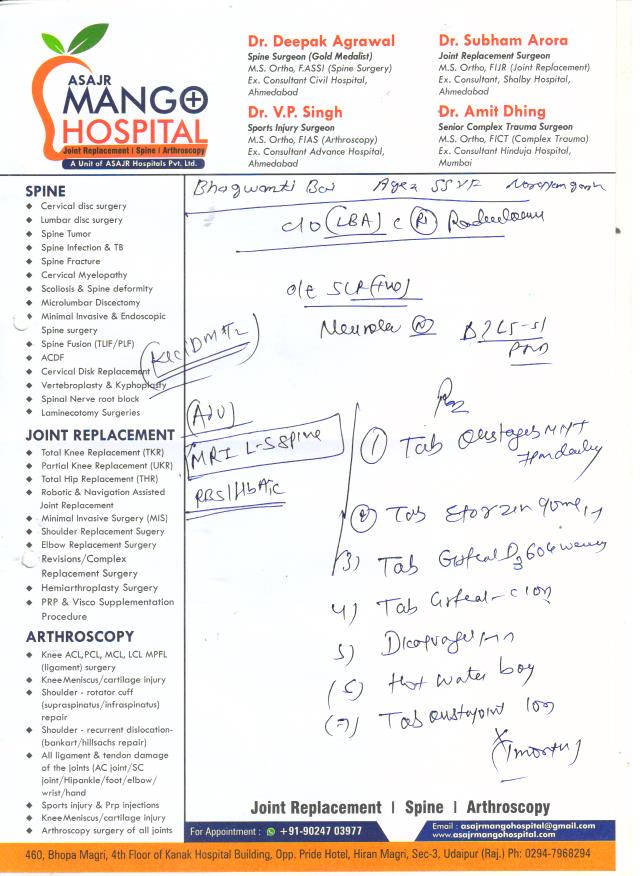 ASAJR
MANGO
HOSPITAL
Joint Replacement | Spine | Arthroscopy
A Unit of ASAJR Hospitals Pvt. Ltd.
Dr. Deepak Agrawal
Spine Surgeon (Gold Medalist)
M.S. Ortho, F.ASSI (Spine Surgery)
Ex. Consultant Civil Hospital,
Ahmedabad
Dr. Subham Arora
Joint Replacement Surgeon
M.S. Ortho, FIJR (Joint Replacement)
Ex. Consultant, Shalby Hospital,
Ahmedabad
Dr. V.P. Singh
Sports Injury Surgeon
M.S. Ortho, FIAS (Arthroscopy)
Ex. Consultant Advance Hospital,
Ahmedabad
Dr. Amit Dhing
Senior Complex Trauma Surgeon
M.S. Ortho, FICT (Complex Trauma)
Ex. Consultant Hinduja Hospital,
Mumbai
Bhagwanti Bai
c/o (LBA) c (Rt)
o/e SLR
(N) L5-S1
K/C/O DM T2
(Adv)
MRI L-S Spine
RBS/HbA1c
Rx
1) Tab
2) Tab
3) Tab D3 60k
4) Tab
5)
(6) Hot water bag
(7) Tab
SPINE
Cervical disc surgery
Lumbar disc surgery
Spine Tumor
Spine Infection & TB
Spine Fracture
Cervical Myelopathy
Scoliosis & Spine deformity
Microlumbar Discectomy
Minimal Invasive & Endoscopic
Spine surgery
Spine Fusion (TLIF/PLF)
ACDF
Cervical Disk Replacement
Vertebroplasty & Kyphoplasty
Spinal Nerve root block
Laminecotomy Surgeries
JOINT REPLACEMENT
Total Knee Replacement (TKR)
Partial Knee Replacement (UKR)
Total Hip Replacement (THR)
Robotic & Navigation Assisted
Joint Replacement
Minimal Invasive Surgery (MIS)
Shoulder Replacement Sugery
Elbow Replacement Surgery
Revisions/Complex
Replacement Surgery
Hemiarthroplasty Surgery
PRP & Visco Supplementation
Procedure
ARTHROSCOPY
Knee ACL,PCL, MCL, LCL MPFL
(ligament) surgery
Knee Meniscus/cartilage injury
Shoulder - rotator cuff
(supraspinatus/infraspinatus)
repair
Shoulder - recurrent dislocation-
(bankart/hillsachs repair)
All ligament & tendon damage
of the joints (AC joint/SC
joint/Hipankle/foot/elbow/
wrist/hand
Sports injury & Prp injections
Knee Meniscus/cartilage injury
Arthroscopy surgery of all joints
Joint Replacement | Spine | Arthroscopy
For Appointment : +91-90247 03977
Email : asajrmangohospital@gmail.com
www.asajrmangohospital.com
460, Bhopa Magri, 4th Floor of Kanak Hospital Building, Opp. Pride Hotel, Hiran Magri, Sec-3, Udaipur (Raj.) Ph: 0294-7968294